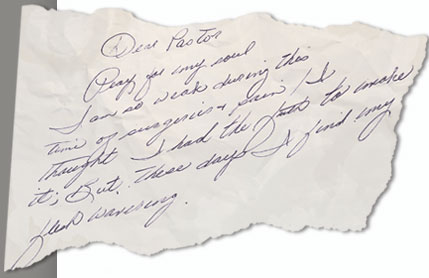 Dear Pastor
Pray for my soul
I am so weak during this
time of surgeries & pain! I
thought I had the faith to make
it; But these days I find my
flesh wavering.